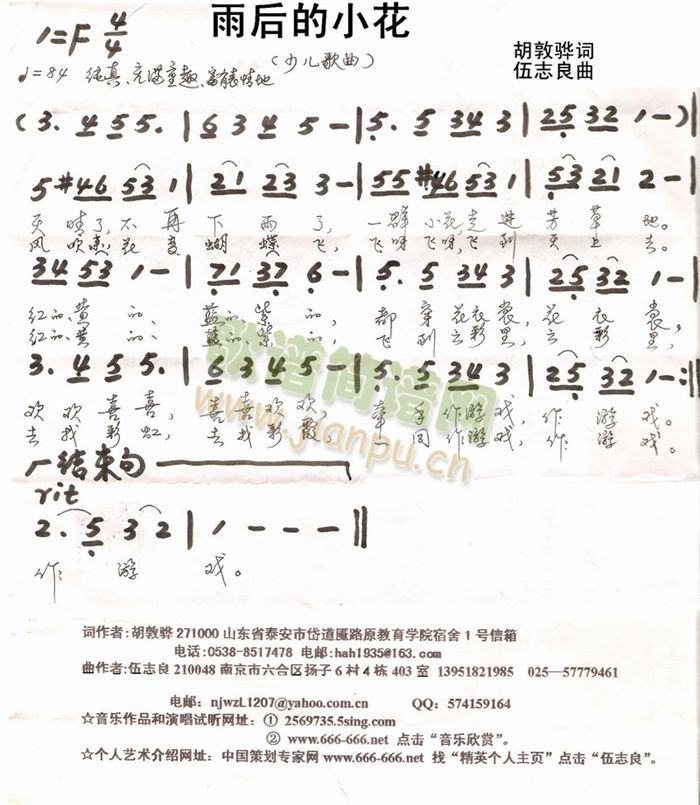 雨后的小花
1=F 4/4
(少儿歌曲)
胡敦骅词
伍志良曲
♩=84 纯真、充满童趣、富有表情地
(3. 4 5 5. | 6 3 4 5 - | 5. 5 3 4 3 | 2 5 3 2 1 - )|
5 #4 6 5 3 1 | 2 1 2 3 3 - | 5 5 #4 6 5 3 1 | 5 3 2 1 2 - |
天晴了,不再下雨了,一群小花走进芳草地。
风吹来,花变蝴蝶飞,飞呀飞呀,飞到天上去。
3 4 5 3 1 - | 7 1 3 7 6 - | 5. 5 3 4 3 | 2 5 3 2 1 - |
红的、黄的、蓝的、紫的,都穿花衣裳,花衣裳,
红的、黄的、蓝的、紫的,飞到云彩里,云彩里,
3. 4 5 5. | 6 3 4 5 - | 5. 5 3 4 3 | 2 5 3 2 1 - :||
欢欢喜喜,喜喜欢欢,牵手作游戏,作游戏。
去找彩虹,去找彩霞,一同作游戏,作游戏。
结束句
rit
2. 5 3 2 | 1 - - - ||
作游戏。
歌谱简谱网
www.jianpu.cn
词作者:胡敦骅 271000 山东省泰安市岱道庵路原教育学院宿舍1号信箱
电话:0538-8517478 电邮:hah1935@163.com
曲作者:伍志良 210048 南京市六合区扬子6村4栋403室 13951821985 025—57779461
电邮: njwzL1207@yahoo.com.cn QQ: 574159164
☆音乐作品和演唱试听网址: ① 2569735.5sing.com
② www.666-666.net 点击“音乐欣赏”。
☆个人艺术介绍网址: 中国策划专家网 www.666-666.net 找“精英个人主页”点击“伍志良”。